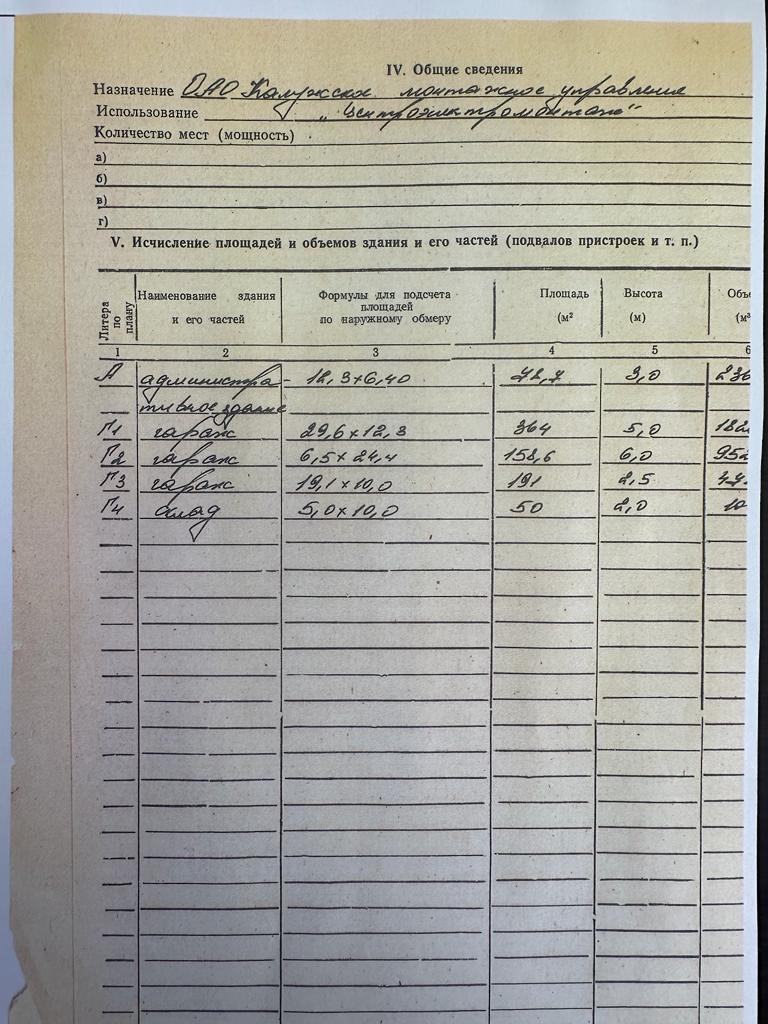 IV. Общие сведения
Назначение ОАО Калужское монтажное управление
Использование "Центроэлектромонтаж"
Количество мест (мощность)
а)
б)
в)
г)
V. Исчисление площадей и объемов здания и его частей (подвалов пристроек и т. п.)
Литера по плану Наименование здания и его частей Формулы для подсчета площадей по наружному обмеру Площадь (м² Высота (м) Объе (м³
1 2 3 4 5 6
А администра- 12,3×6,40 78,7 3,0 236
тивное здание
Г1 гараж 29,6×12,3 364 5,0 182
Г2 гараж 6,5×24,4 158,6 6,0 952
Г3 гараж 19,1×10,0 191 2,5 47
Г4 склад 5,0×10,0 50 2,0 10